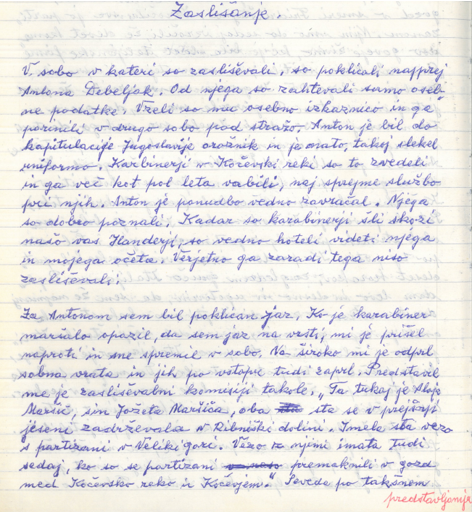 Zasliševanje.
V sobo v kateri so zasliševali, so poklicali najprej
Antona Debeljak. Od njega so zahtevali samo oseb-
ne podatke. Vzeli so mu osebno izkaznico in ga
porinili v drugo sobo pod stražo. Anton je bil do
kapitulacije Jugoslavije orožnik in je nato, takoj slekel
uniformo. Karbinerji v Kočevski reki so to zvedeli
in ga več kot pol leta vabili, naj sprejme službo
pri njih. Anton je ponudbo vedno zavračal. Njega
so dobro poznali. Kadar so karabinerji šli skozi
našo vas Handlerji, so vedno hoteli videti njega
in mojega očeta. Verjetno ga zaradi tega niso
zasliševali.
Za Antonom sem bil poklican jaz. Ko je karabiner
maršalo opazil, da sem jaz na vrsti, mi je prišel
naproti in me spremil v sobo. Na široko mi je odprl
sobna vrata in jih po vstopu tudi zaprl. Predstavil
me je zasliševalni komisiji takole: „Ta tukaj je Alojz
Maršič, sin Jožeta Maršiča, oba sta se v prejšnji
jeseni zadrževala v Ribniški dolini. Imela sta vezo
s partizani v Veliki gori. Vezo z njimi imata tudi
sedaj, ko so se partizani premaknili v gozd
med Kočevsko reko in Kočevjem." Seveda po takšnem
predstavljanju